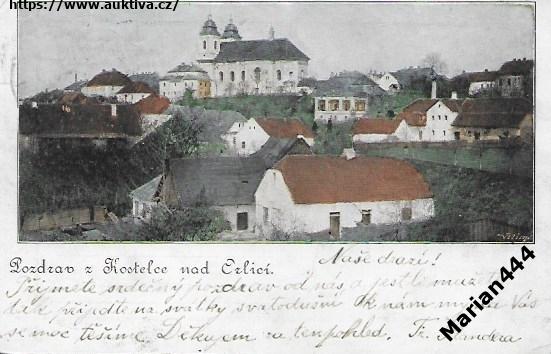 https://www.auktiva.cz/
Pozdrav z Kostelce nad Orlicí.
Naše drazí!
Přijmete srdečný pozdrav od nás a jestle možná
tak přijďte na svátky svatodušní k nám my na Vás
se moc těšíme. Děkujem za ten pohled. Fr.
Marian444